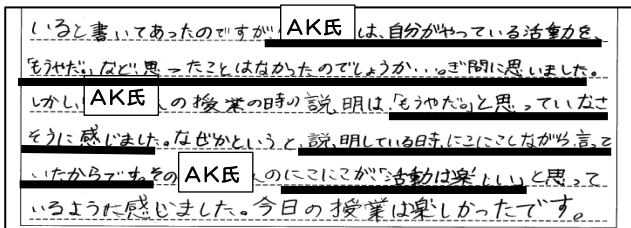 いると書いてあったのですが、AK氏は、自分がやっている活動を、
「もうやだ。」など思ったことはなかったのでしょうか…。ぎ問に思いました。
しかしAK氏の授業の時の説明は、「もうやだ。」と思っていなさ
そうに感じました。なぜかというと、説明している時、にこにこしながら言って
いたからです。そのAK氏のにこにこが「活動は楽しい」と思って
いるように感じました。今日の授業は楽しかったです。